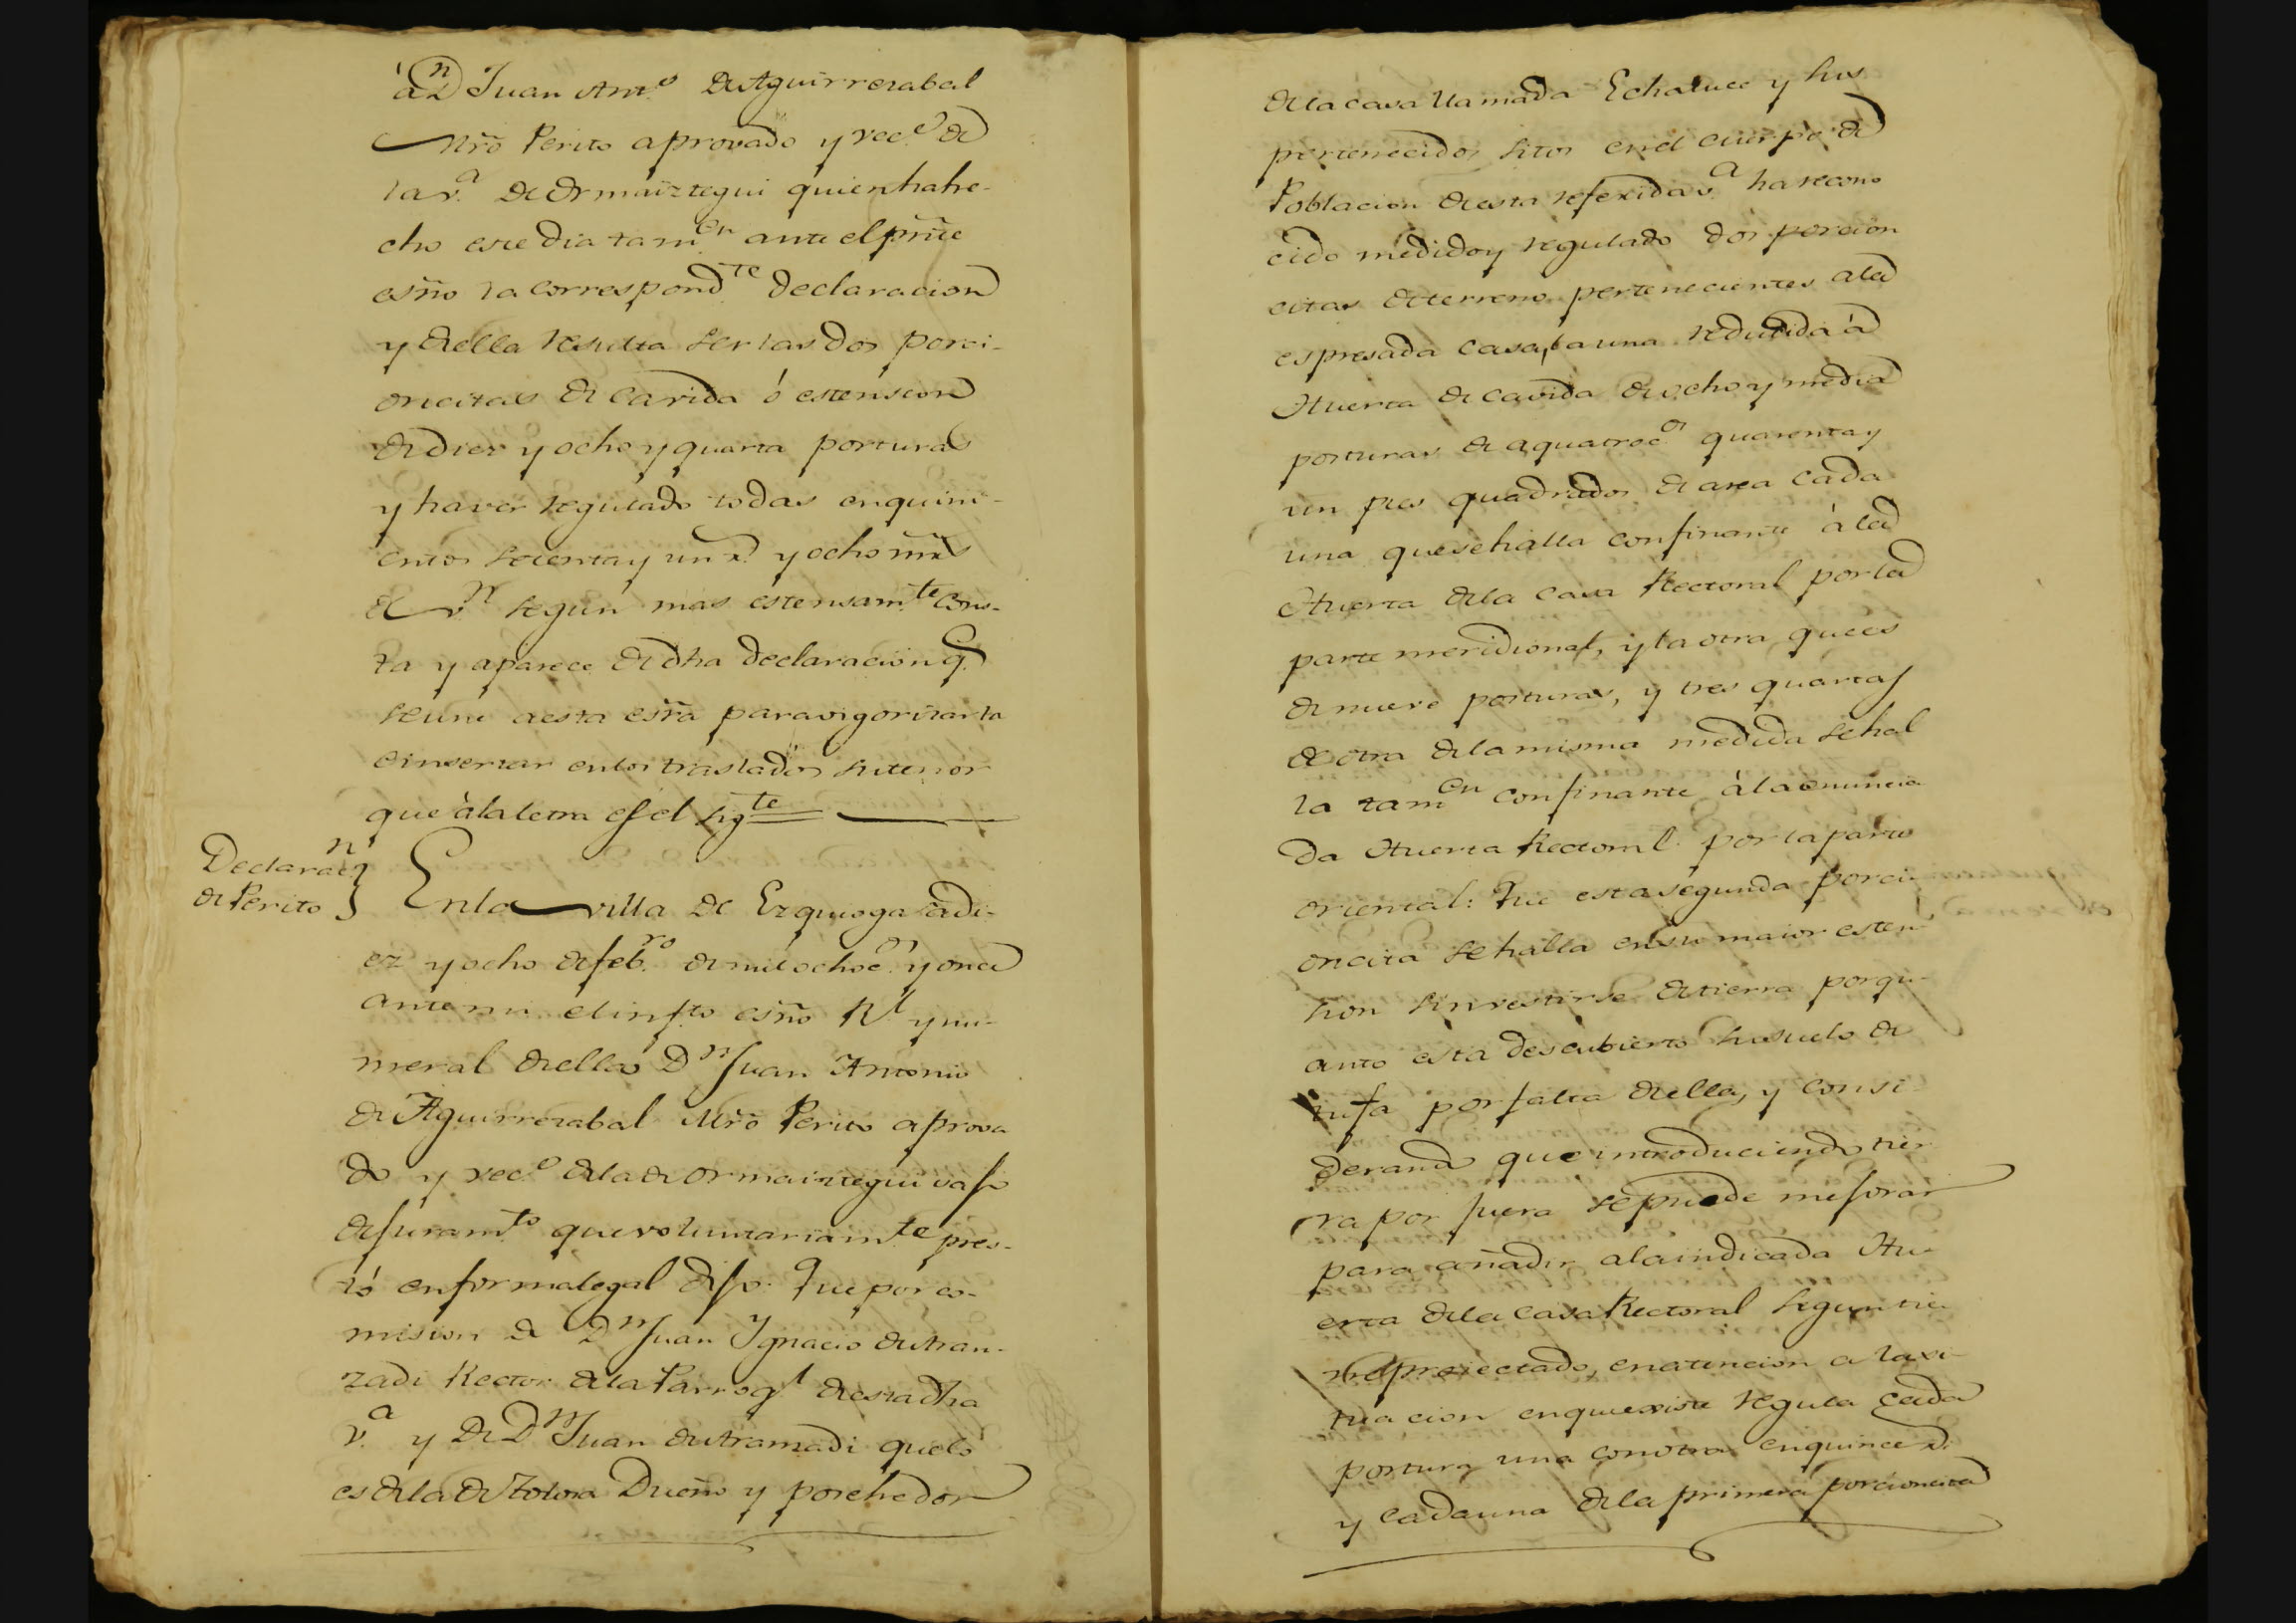 à Dn Juan Anto de Aguirrezabal
Mro Perito aprovado y veco de
la va de Ormaiztegui quien ha he-
cho este dia tamen ante el prñte
esño la correspondte declaracion
y de ella resulta ser las dos porci-
oncitas de cavida ó estension
de diez y ocho y quarta porturas
y haver regulado todas en quini-
entos setenta y un rs y ocho mrs
de vn segun mas estensamte cons-
ta y aparece de dha declaracion q.
se une a esta esrra para vigorizarla
e insertar en los traslados su tenor
que à la letra es el sigte
Declaracn
de Perito
En la villa de Ezquioga a di-
ez y ocho de febro de mil ochocs y once
ante mi el infto esño Rl y nu-
meral de ella Dn Juan Antonio
de Aguirrezabal Mro Perito aprova
do y veco de la de Ormaiztegui vajo
de juramto que voluntariamte pres-
tó en forma legal dijo: Que por co-
mision de Dn Juan Ygnacio de Aran-
zadi Rector de la Parroql de esta dha
va y de Dn Juan de Aranzadi que lo
es de la de Tolosa Dueño y posehedor
de la casa llamada Echaluce y sus
pertenecidos sitos en el cuerpo de
Poblacion de esta referida va ha recono
cido medido y regulado dos porcion
citas de terreno pertenecientes a la
espresada casa, la una reducida á
Huerta de cavida de ocho y media
porturas de a quatrocs quarenta y
un pies quadrados de area cada
una que se halla confinante à la
Huerta de la casa Rectoral por la
parte meridional, y la otra que es
de nueve porturas, y tres quartas
de otra de la misma medida se hal
la tamen confinante à la enuncia
da Huerta Rectoral por la parte
oriental: Que esta segunda porci-
oncita se halla en su maior esten-
sion sin vestirse de tierra porqu-
anto esta descubierto su suelo de
tufa por falta de ella, y consi-
derando que introduciendo tier
ra por fuera se puede mejorar
para añadir a la indicada Hu-
erta de la casa Rectoral segun tie-
ne proiectado, en atencion a la si-
tuacion en que existe regula cada
portura una con otra en quince rs
y cada una de la primera porcioncita